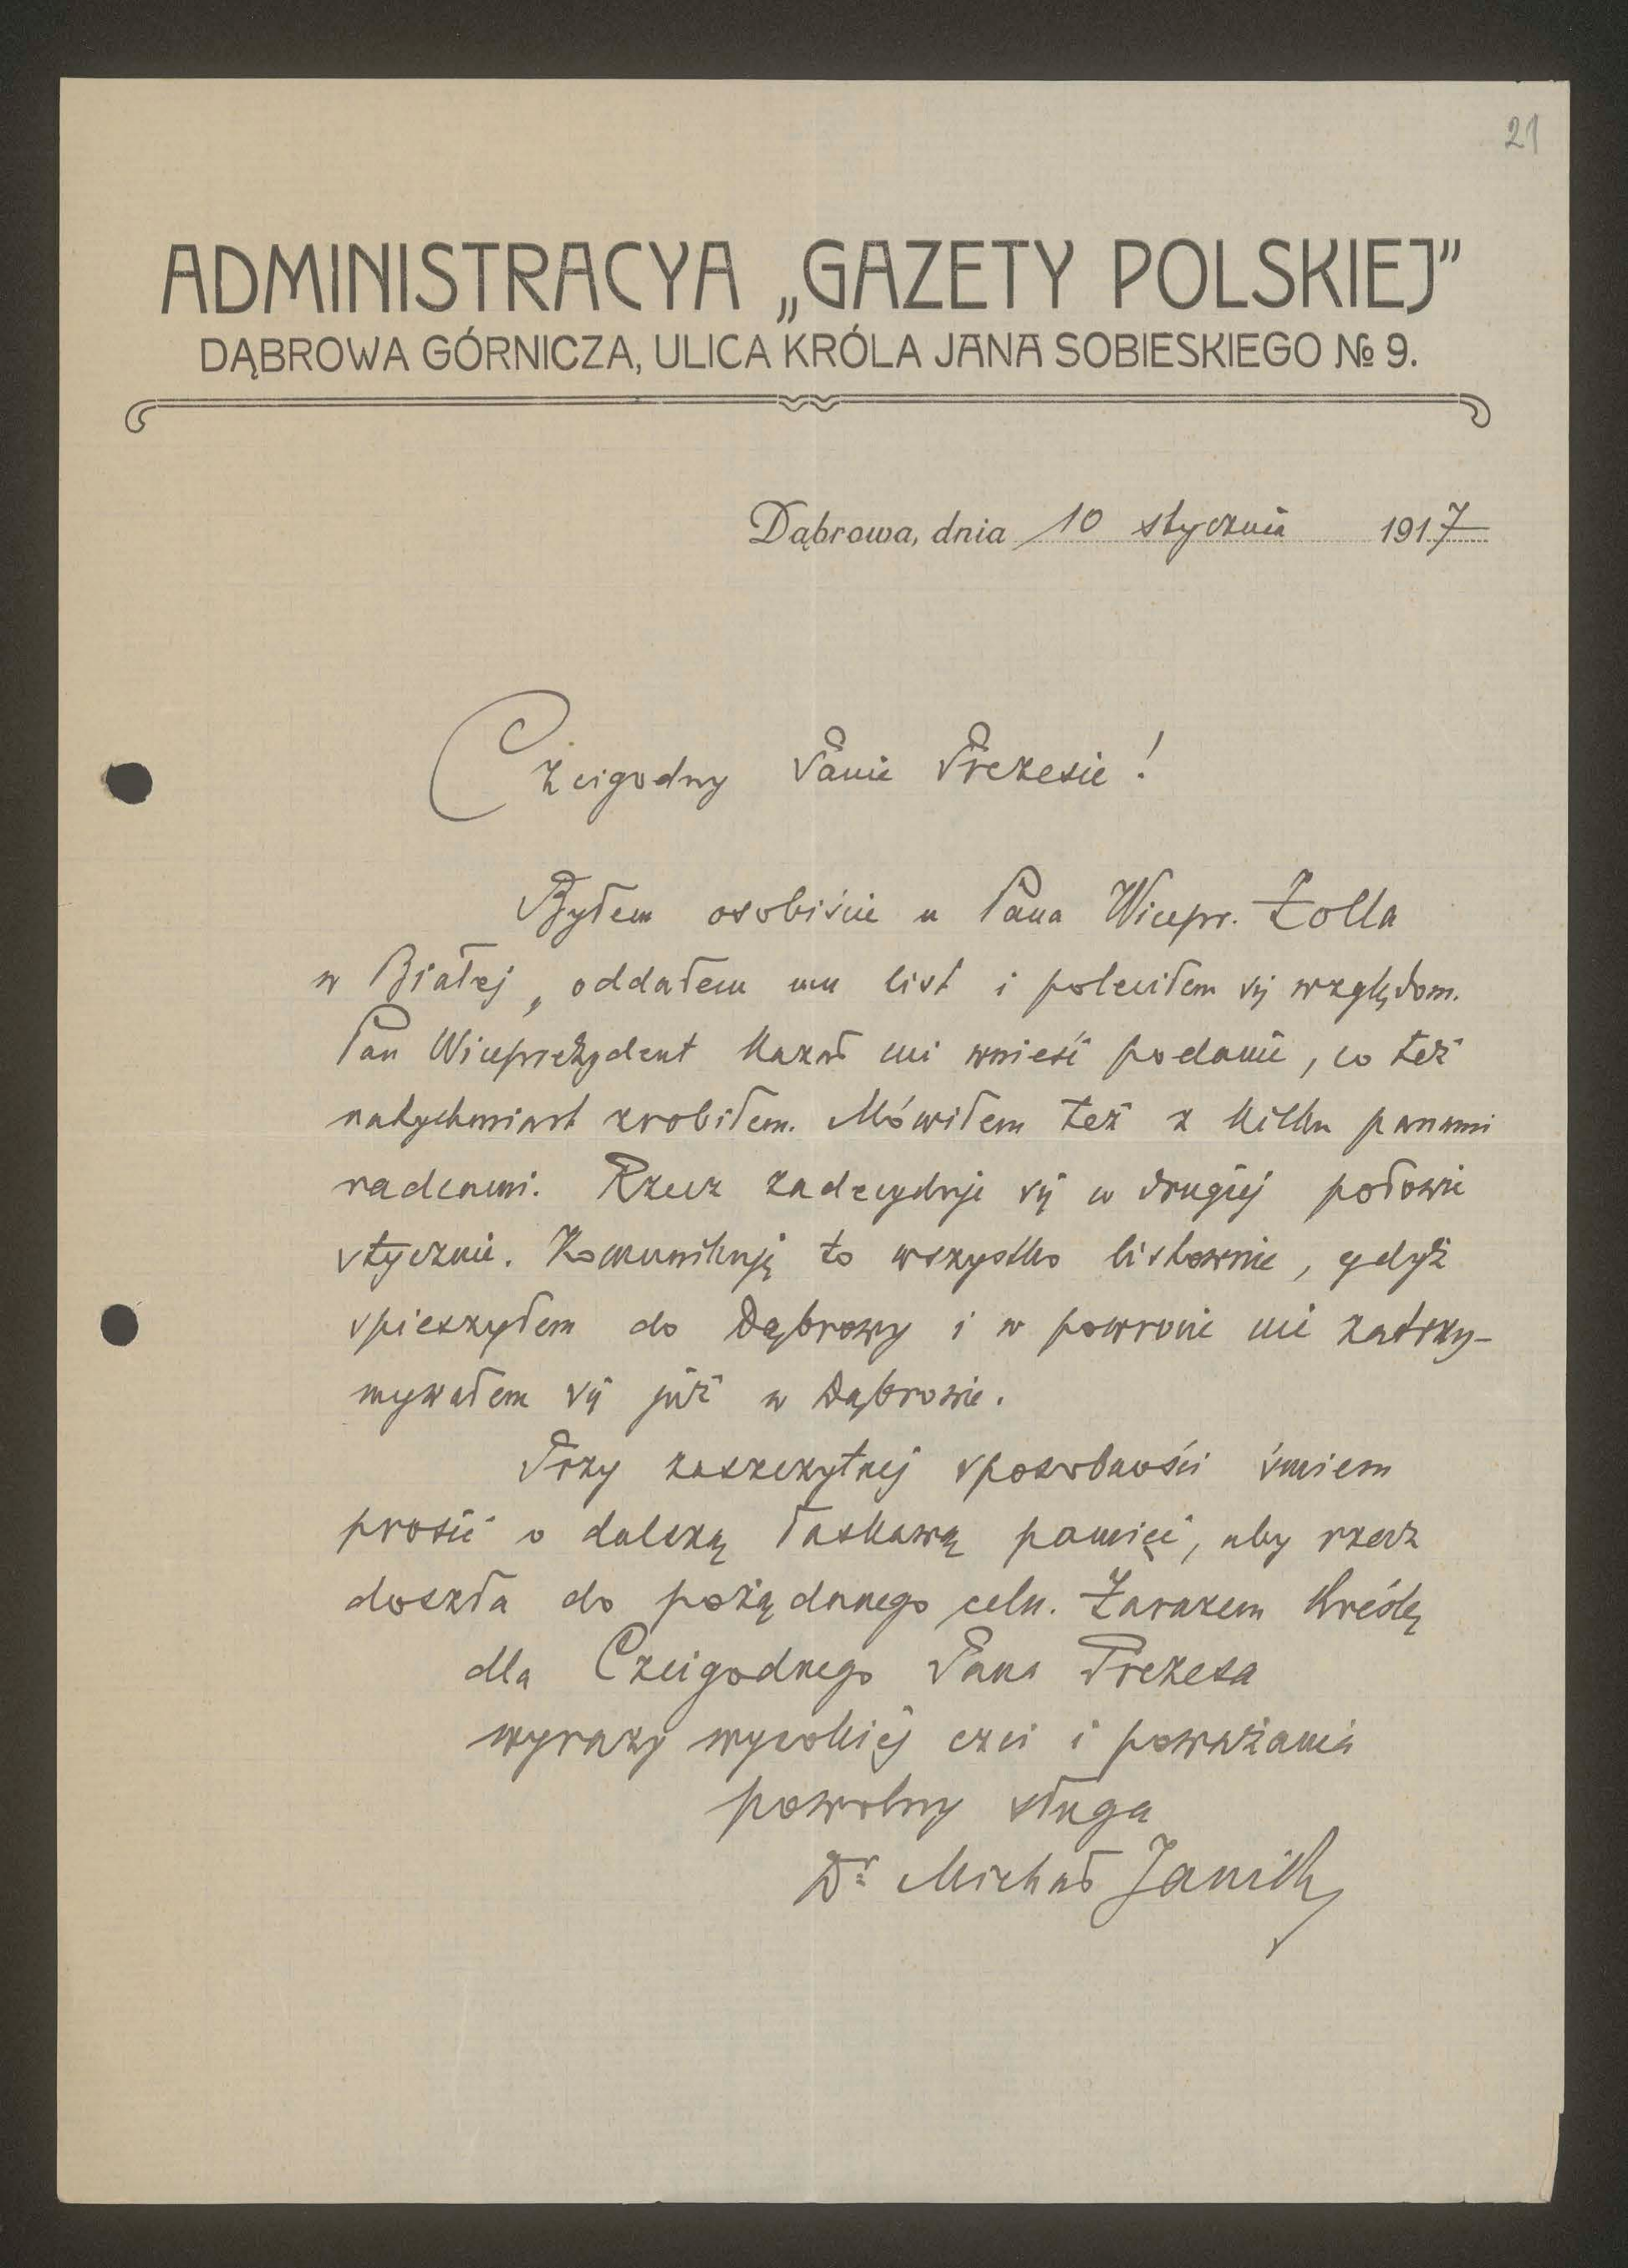 21
ADMINISTRACYA „GAZETY POLSKIEJ”
DĄBROWA GÓRNICZA, ULICA KRÓLA JANA SOBIESKIEGO № 9.
Dąbrowa, dnia 10 stycznia 1917
Czcigodny Panie Prezesie!
Byłem osobiście u Pana Wicepr. Zolla
w Białej, oddałem mu list i poleciłem się względom.
Pan Wiceprezydent kazał mi wnieść podanie, co też
natychmiast zrobiłem. Mówiłem też z kilku panami
radcami. Rzecz zadecyduje się w drugiej połowie
stycznia. Komunikuję to wszystko listownie, gdyż
spieszyłem do Dąbrowy i w powrocie nie zatrzy-
mywałem się już w Dąbrowie.
Przy zaszczytnej sposobności śmiem
prosić o dalszą łaskawą pamięć, aby rzecz
doszła do pożądanego celu. Zarazem kreślę
dla Czcigodnego Pana Prezesa
wyrazy wysokiej czci i poważania
powolny sługa
Dr Michał Janik